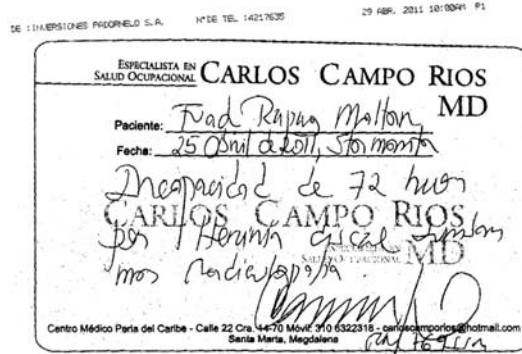 DE : INVERSIONES PADORNELO S.A. Nº DE TEL : 4217635 29 ABR. 2011 10:00AM P1
ESPECIALISTA EN
SALUD OCUPACIONAL CARLOS CAMPO RIOS
MD
Paciente: Fuad Rapag Mattar
Fecha: 25 Abril de 2011, Sta marta
Incapacidad de 72 horas
CARLOS CAMPO RIOS
por Hernia discal
SALUD OCUPACIONAL MD
mas radiculopatia
Centro Médico Perla del Caribe - Calle 22 Cra. 14-70 Móvil: 310 6322318 - carloscamporios@hotmail.com
Santa Marta, Magdalena